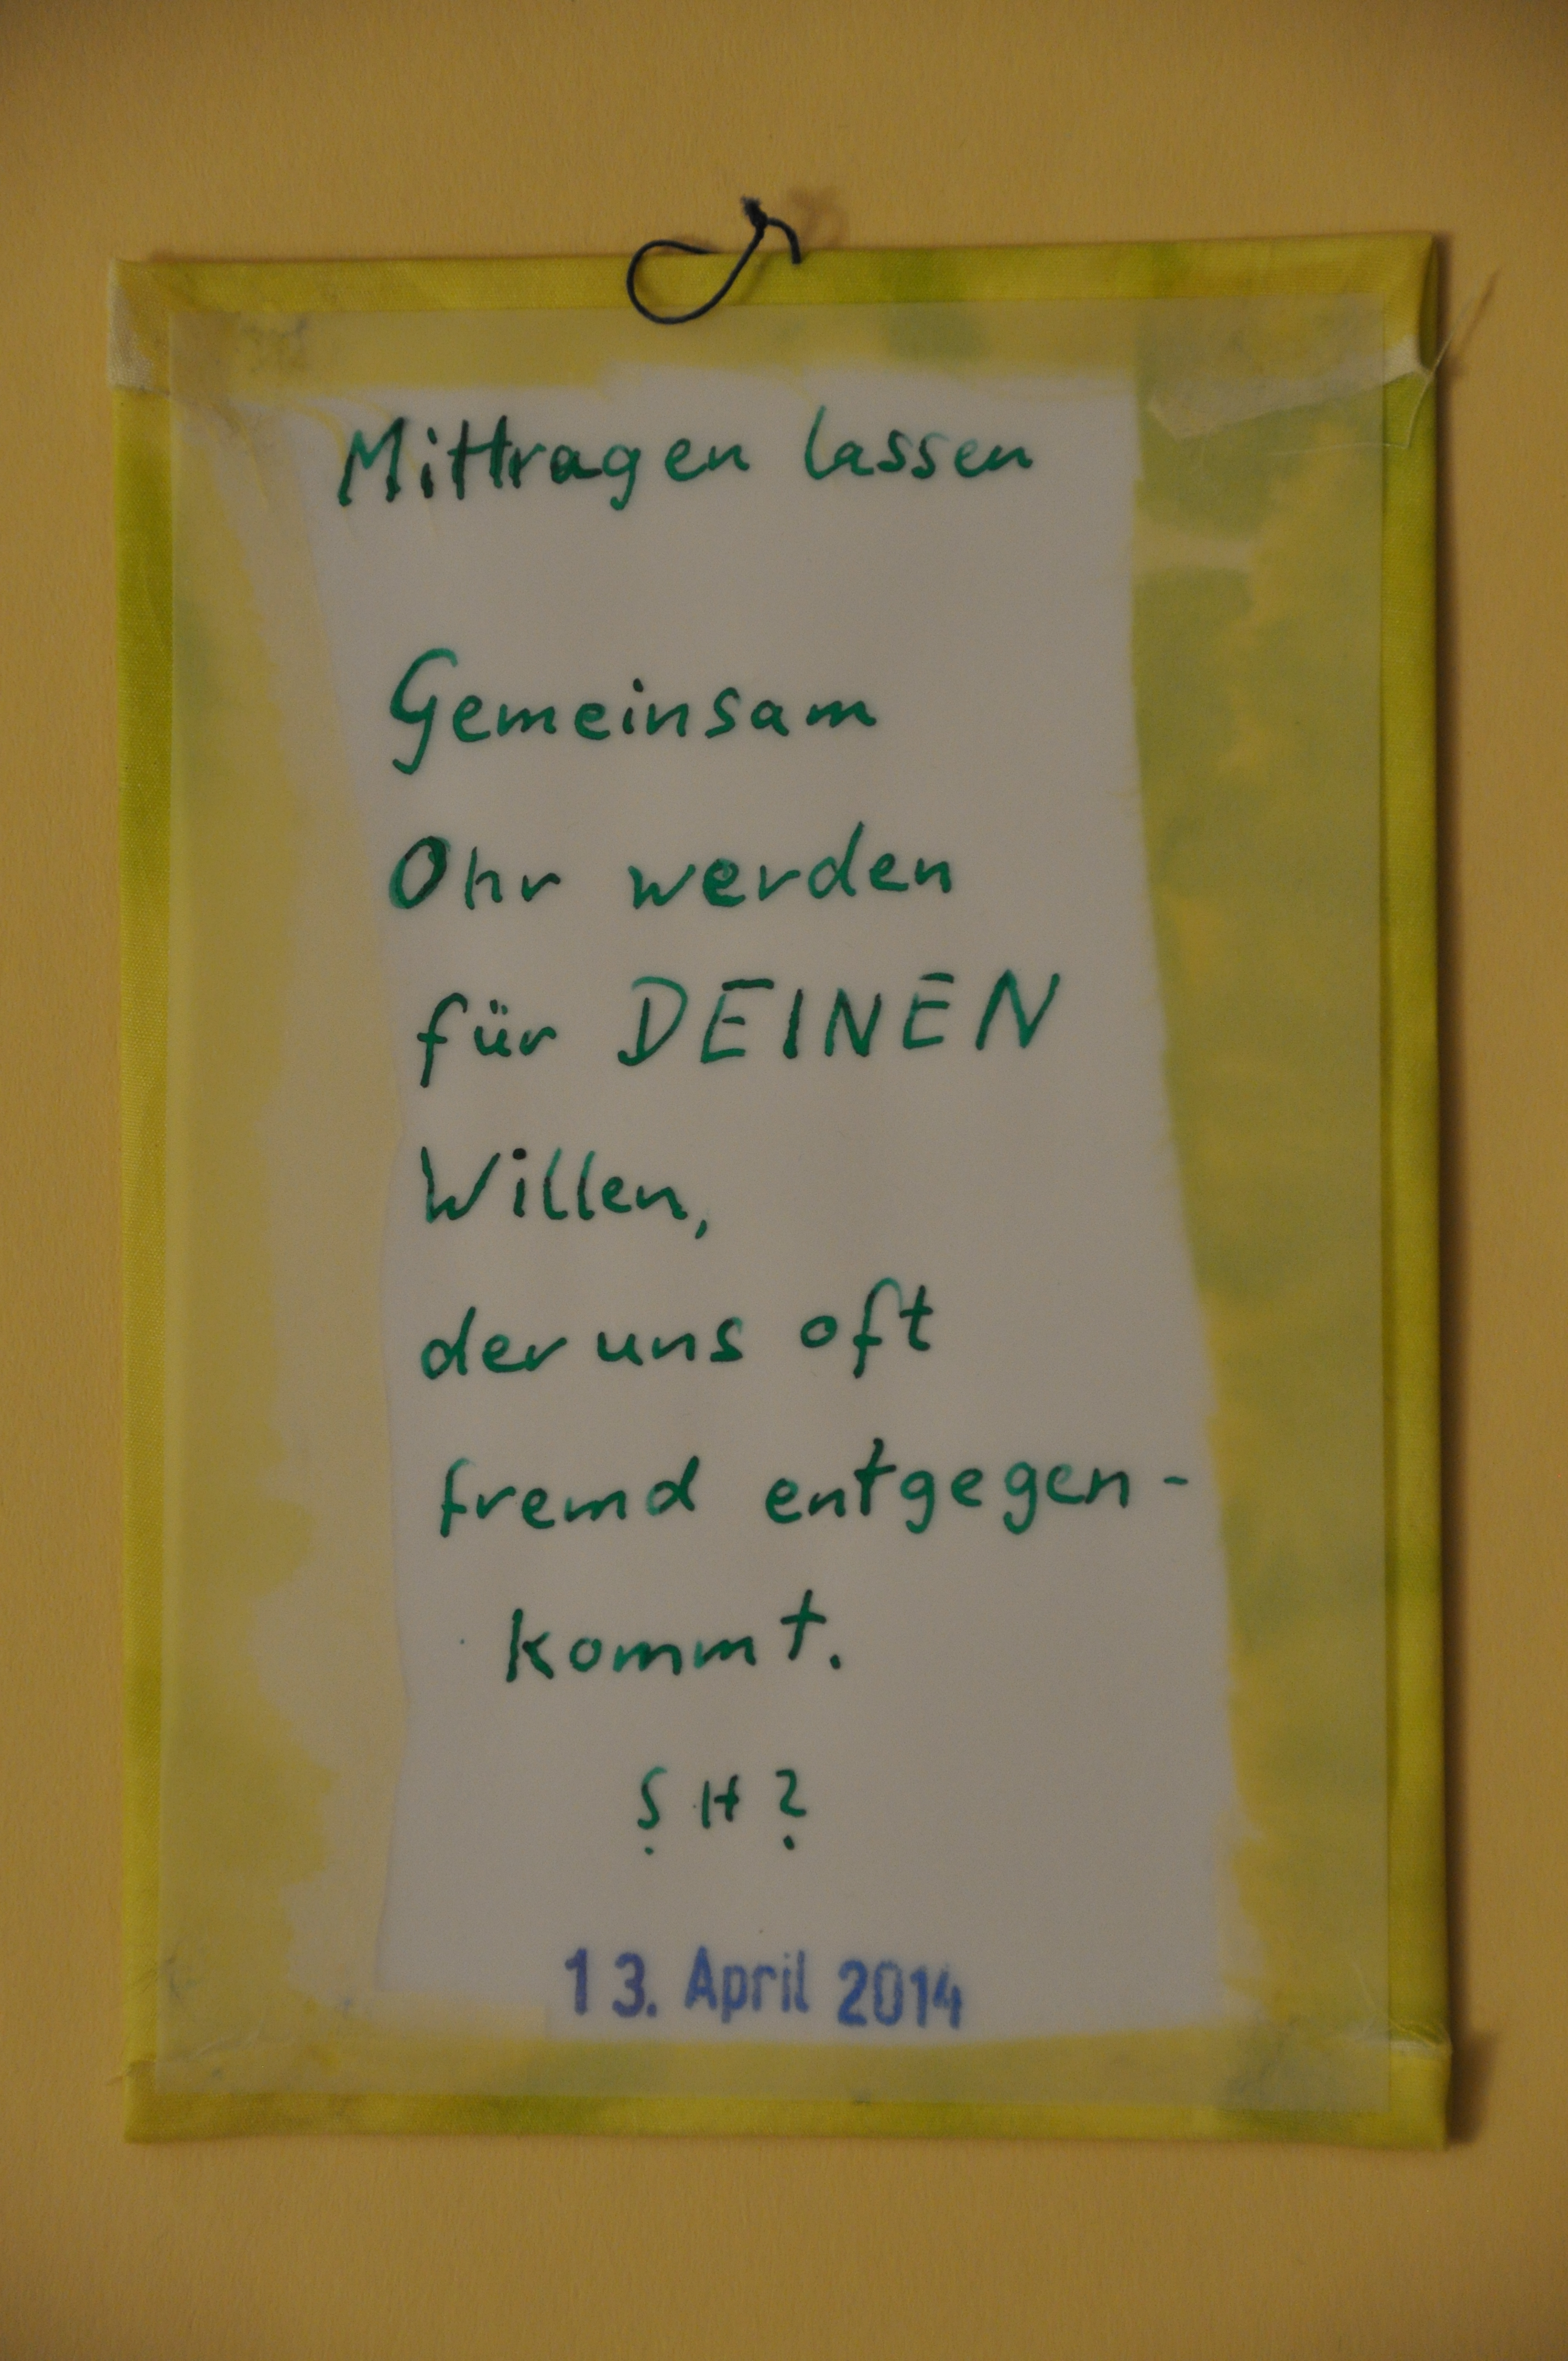 Mittragen lassen
Gemeinsam
Ohr werden
für DEINEN
Willen,
der uns oft
fremd entgegen-
kommt.
SH?
13. April 2014